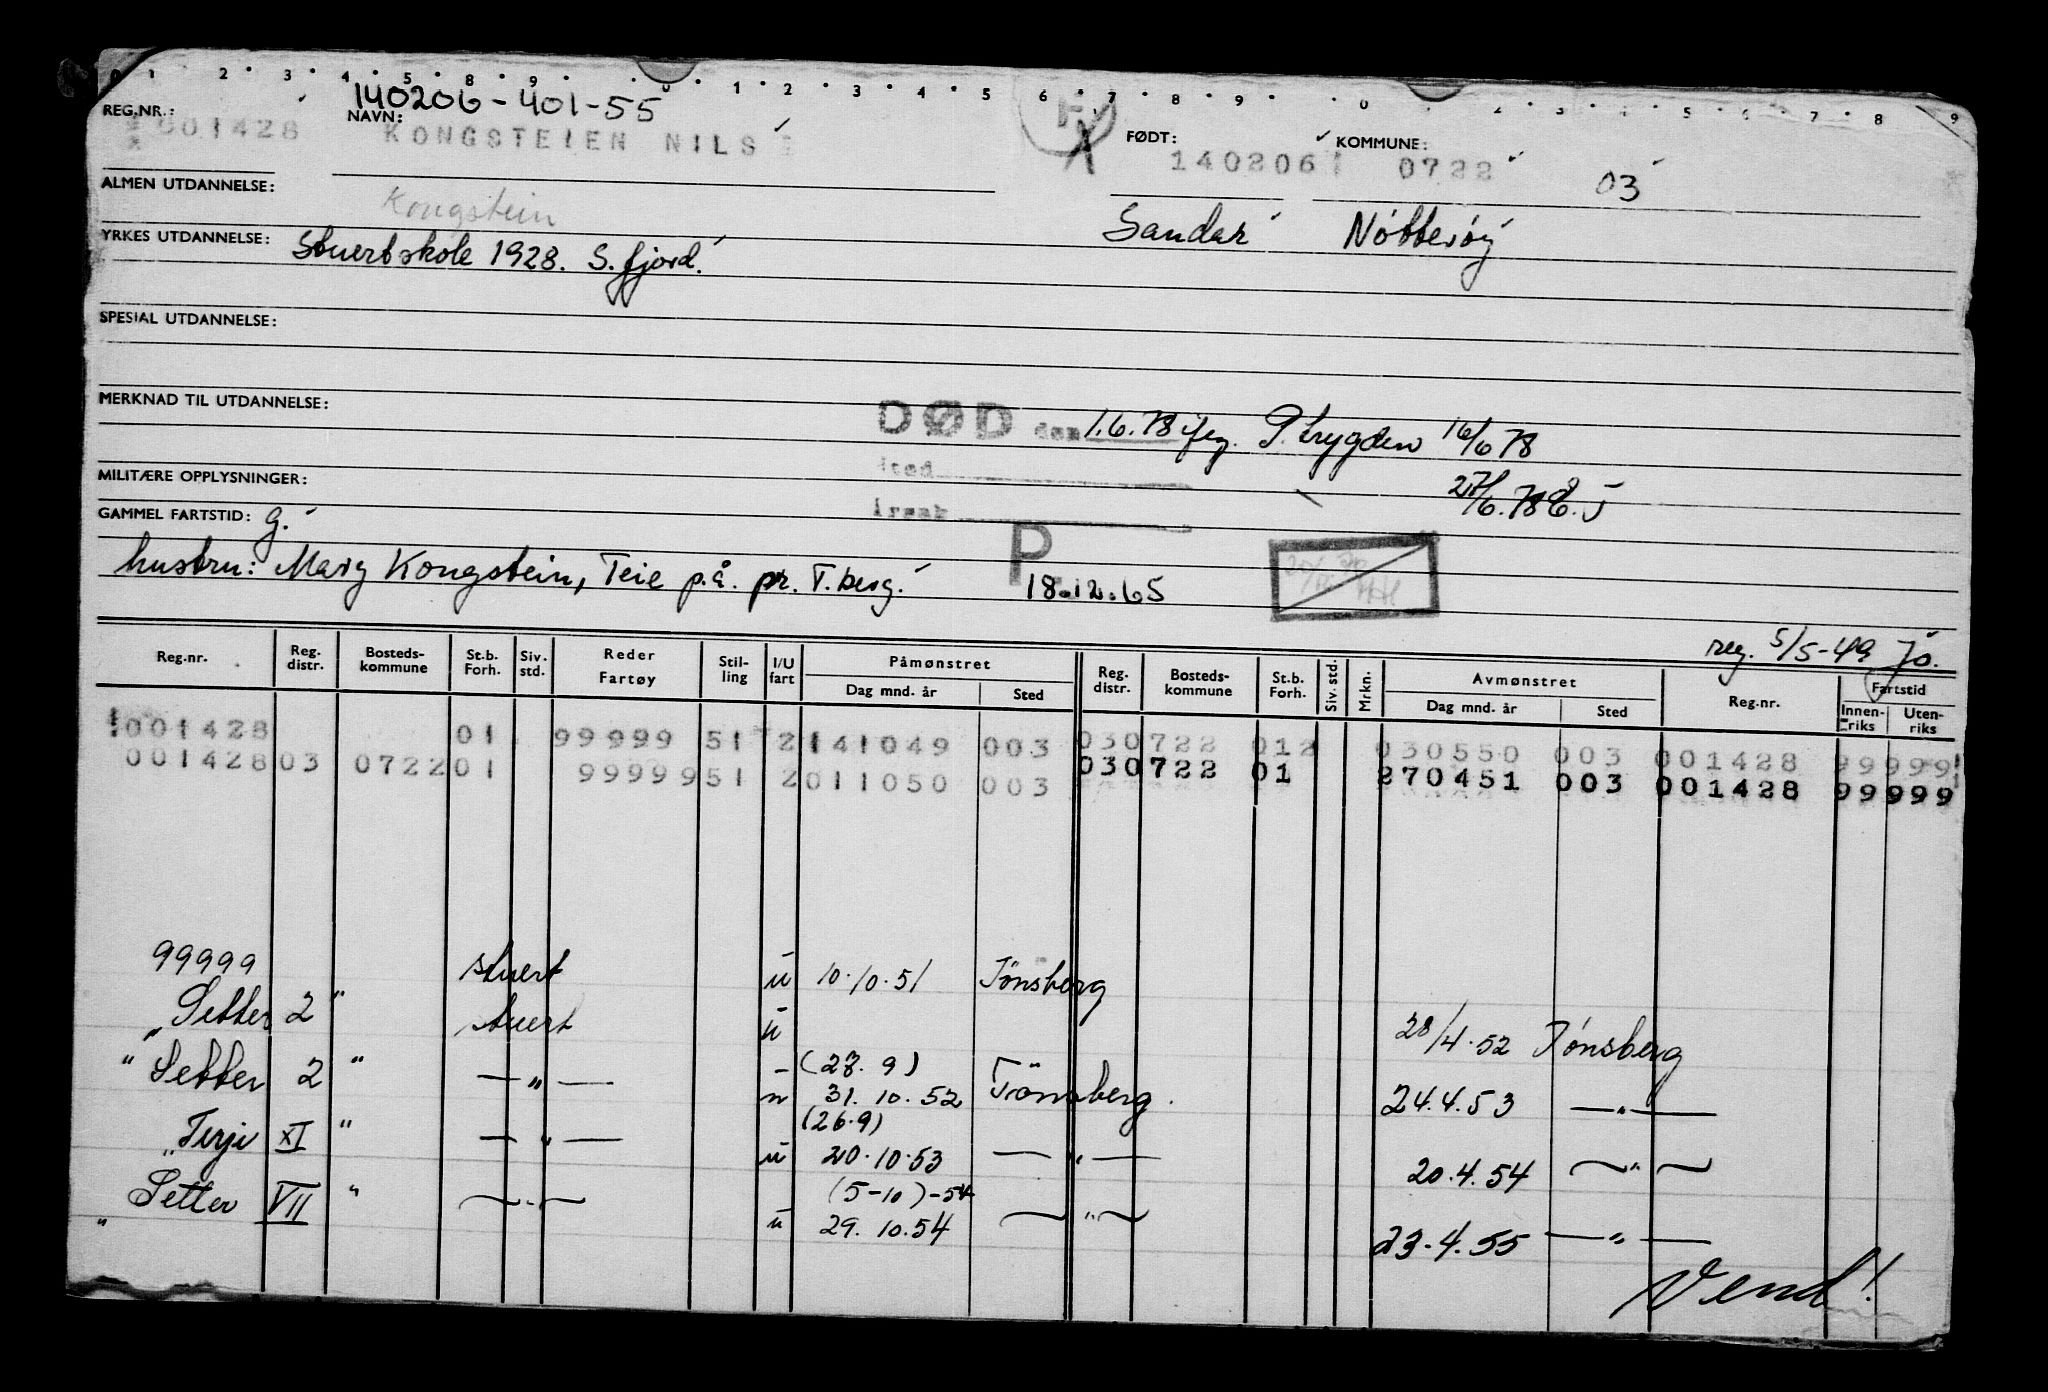 0 1 2 3 4 5 8 9 0 1 2 3 4 5 6 7 8 9 0 2 3 4 5 6 7 8 9
140206-401-55
REG.NR.: NAVN: FØDT: KOMMUNE:
001428 KONGSTEIEN NILS 140206 0722 03
ALMEN UTDANNELSE: Kongstein Sandar Nötteröy
YRKES UTDANNELSE: Stuertskole 1928. S.fjord.
SPESIAL UTDANNELSE:
MERKNAD TIL UTDANNELSE:
DØD den 1.6.78 ifg. P.trygden 16/6 78
Sted 27/6.78
MILITÆRE OPPLYSNINGER:
Årsak
GAMMEL FARTSTID: g.
hustru: Mary Kongstein, Teie p.å. pr. T.berg.
P. 18.12.65
reg. 5/5-49 Jö.
Reg.nr. Reg. distr. Bosteds-kommune St.b. Forh. Siv. std. Reder Fartøy Stil-ling I/U fart Påmønstret Dag mnd. år Sted Reg. distr. Bosteds-kommune St.b. Forh. Siv. std. Mrkn. Avmønstret Dag mnd. år Sted Reg.nr. Fartstid Innen-riks Uten-riks
001428 01 99999 51 2 141049 003 030722 012 030550 003 001428 99999
001428 03 0722 01 99999 51 2 011050 003 030722 01 270451 003 001428 99999
99999 stuert u 10.10.51 Tönsberg
Setter 2 " stuert u 28/4.52 Tönsberg
(28.9)
" Setter 2 " — " — 31.10.52 Tönsberg. 24.4.53 — " —
(26.9)
" Terje XI " — " — u 20.10.53 — " — 20.4.54 — " —
(5-10)-54
" Setter VII " — " — u 29.10.54 — " — 23.4.55 — " —
Vend!